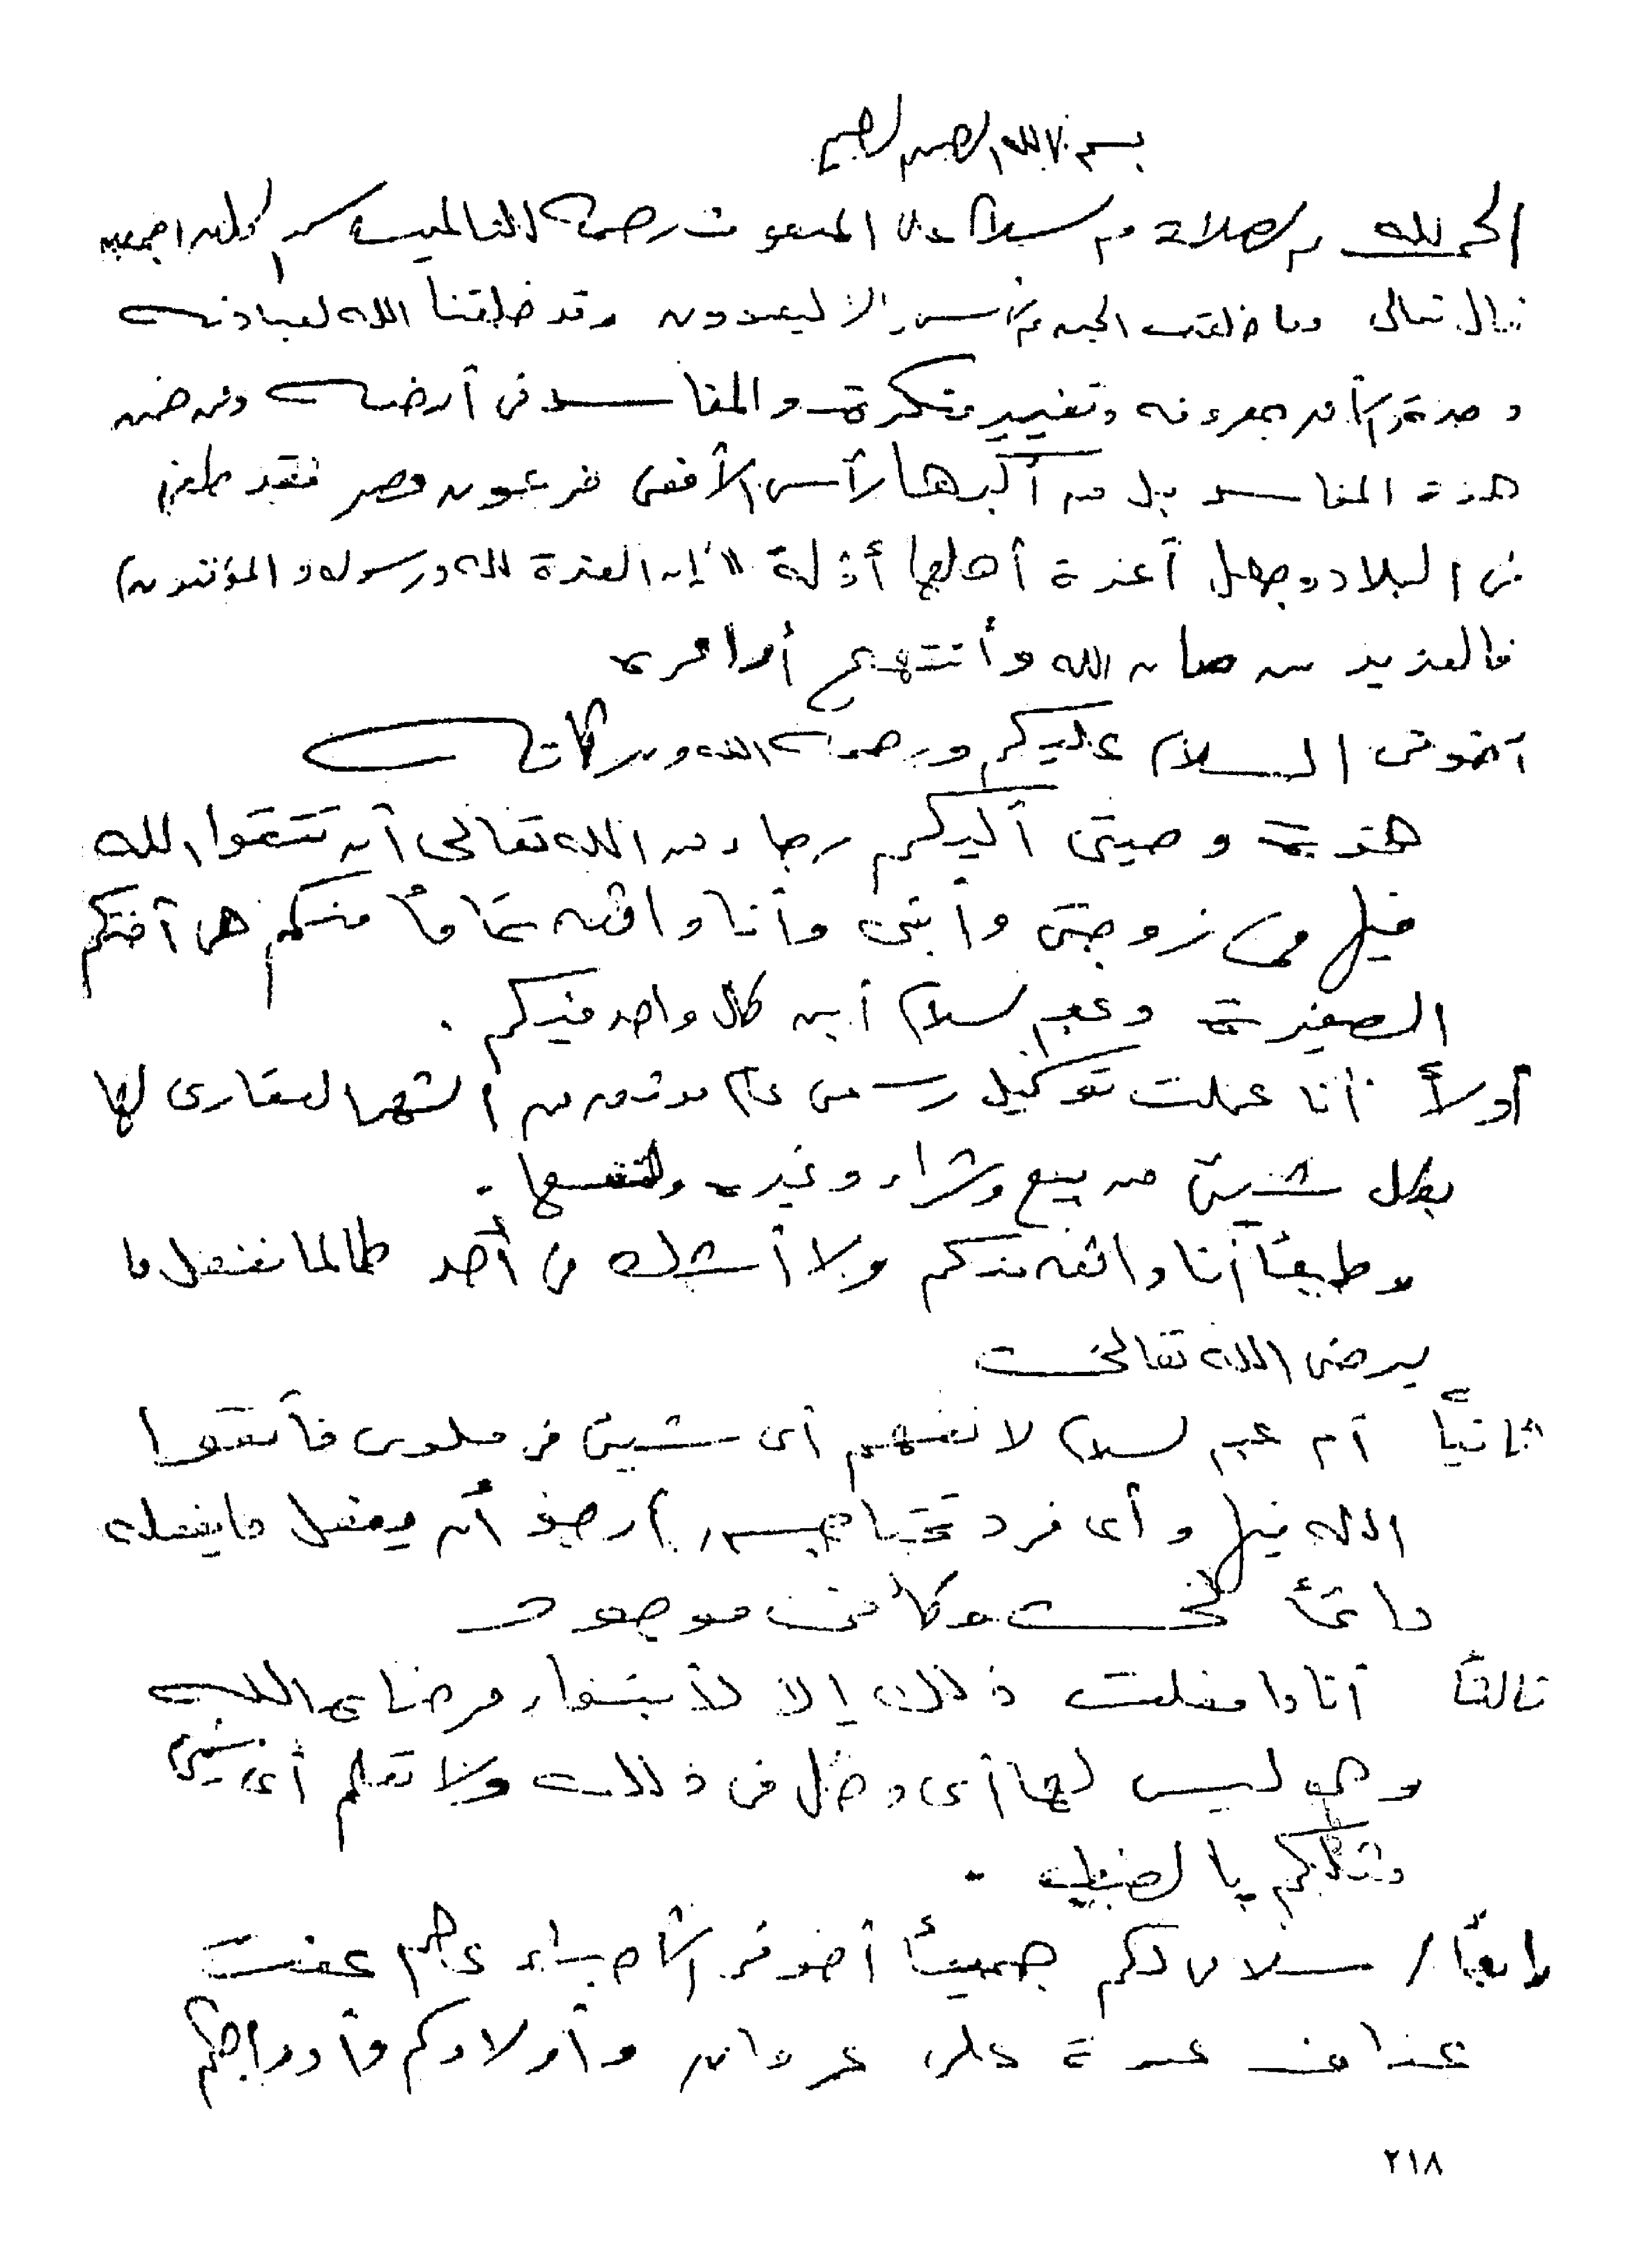 بسم الله الرحمن الرحيم
الحمد لله والصلاة والسلام على المبعوث رحمة للعالمين سيد الخلق اجمعين
قال تعالى وما خلقت الجن والإنس إلا ليعبدون وقد خلقنا الله لعبادته
وحده والأمر بمعروفه وتغيير منكره والمفاسد فى أرضه ومن ضمن
هذه المفاسد بل من أكبرها رأس الأفعى فرعون مصر فقد طغى
فى البلاد وجعل أعزة أهلها أذلة "إن العزة لله ورسوله والمؤمنون)
فالعزيز من صان الله وأنتهج أوامره
أخوتى السلام عليكم ورحمة الله وبركاته
هذه وصيتى أليكم رجاء من الله تعالى أن تتقوا الله
فيها وفى زوجتى وأبنى وأنا واثق تماماً منكم هى أختكم
الصغيرة وعبد السلام أبن كل واحد فيكم .
أولاً أنا عملت توكيل رسمى عام موثق من الشهر العقارى لها
بكل شيئ من بيع وشراء وغيره ولنفسها .
وطبعاً أنا واثق منكم ولا أشك فى أحد طالما نفعل ما
يرضى الله تعالى
ثانياً أم عبد السلام لا تفهم أى شيئ فى فأتقوا
الله فيها وأى فرد تحتاجه أرجو أن يفعل ما يفعله
دائماً لى وكأنى موجود
ثالثاً أنا ما فعلت ذلك إلا لأبتغاء مرضاة الله
وهى ليس لها أى دخل فى ذلك ولا تعلم أى شيئ
مثلكم بالضبط .
رابعاً / سلامى لكم جميعاً أخوتى الأحباء عاصم عفت
عواطف عبدة على مروان وأولادكم وأزواجكم
٢١٨